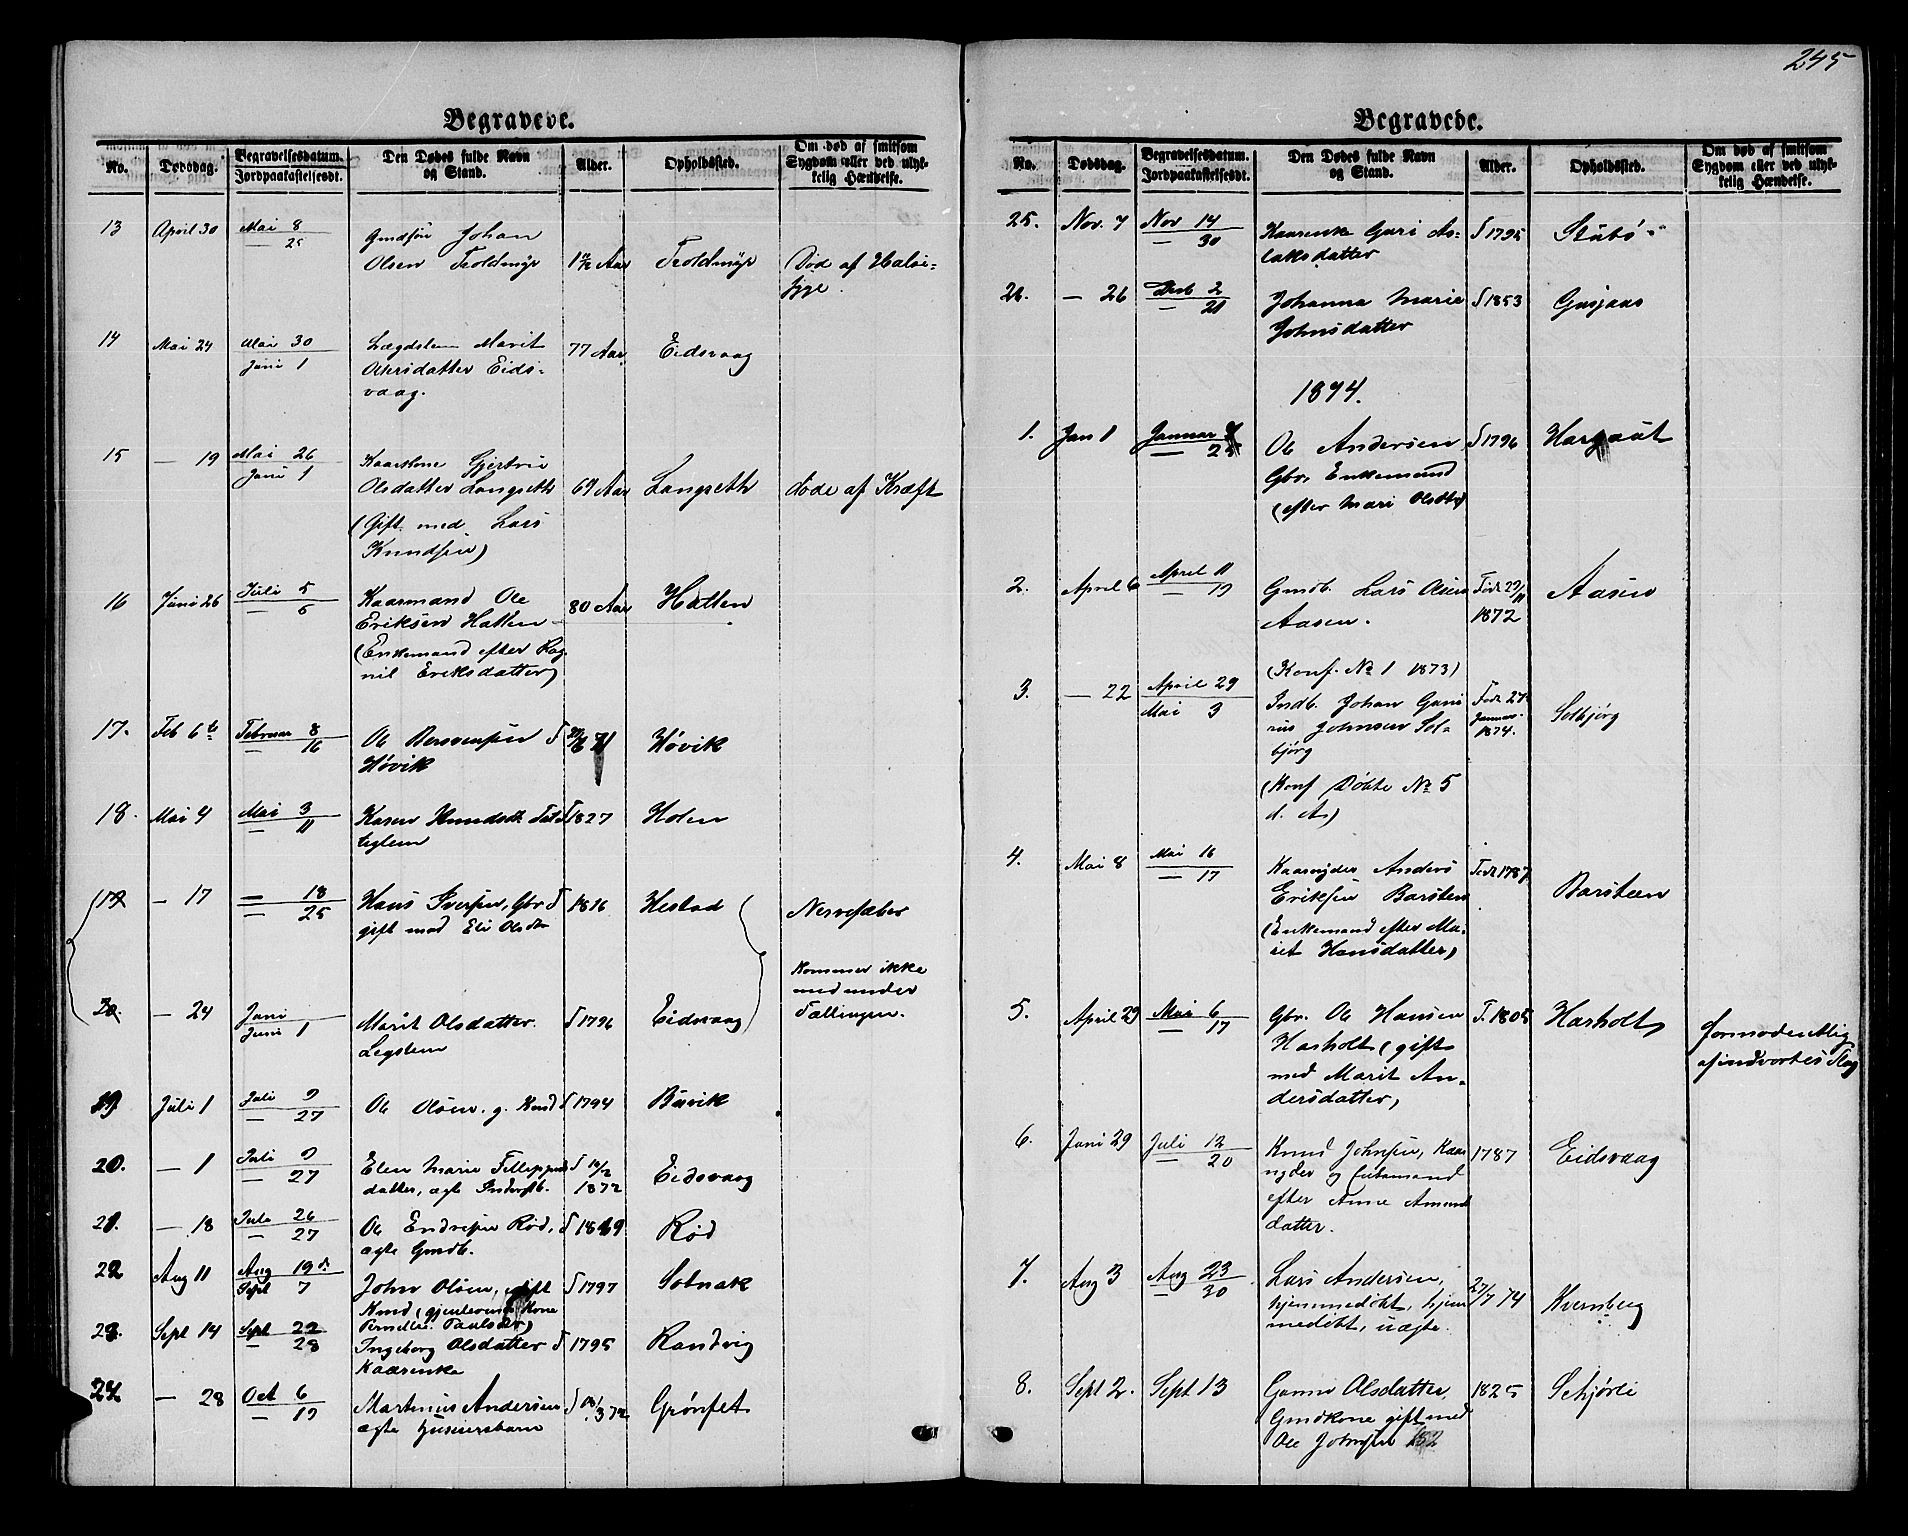 245
Begravede.
No. Dødsdag. Begravelsesdatum. Jordpaakastelsesdt. Den Dødes fulde Navn og Stand. Alder. Opholdssted. Om død af smitsom Sygdom eller ved ulykkelig Hændelse.
13 April 30 Mai 8 Gmdsøn Johan
— 25 Olsen Troldmyr Aar Troldmyr Død af Halse-
syge.
14 Mai 24 Mai 30 Lægdslem Marit 77 Aar Eidsvaag
Juni 1 Eids-
vaag.
15 — 19 Mai 26 Kaarkone Gjertru
Juni 1 Olsdatter Langseth 69 Aar Langseth døde af Kræft
(Gift med Lars
Knudsen)
16 Juni 26 Juli 5 Kaarmand Ole 80 Aar Hatten
— 6 Eriksen Hatten
(Enkemand efter Rag-
nil Eriksdatter)
17. Feb 6te Februar 8 Ole Høvik
— 16 Høvik
18. Mai 4 Mai 3 Karen f 1827 Holen
— 11
19 — 17 — 18 Hans Iversen, Gbr f 1816 Hestad Nervefeber
— 25 gift med Eli Olsdtr
Kommer ikke
med under
Tællingen.
20. — 24 Juni Marit Olsdatter f 1796 Eidsvaag
Juni 1 Legslem
19 Juli 1 Juli 9 Ole Olsen. g. Kmd f 1794 Buvik
— 27
20. — 1 Juli 9 Elen Marie f Eidsvaag
— 27 datter, ægte 1872
21. — 18 Juli 26 Ole Endresen Rød, f 1869 Rød
— 27 ægte Gmdb.
22 Aug 11 Aug 19 John Olsen, gift f 1797 Solnak
Sept 7 Kmd (gjenlevende Kone
Paulsdtr)
23. Sept 14 Sept 22 Ingeborg Olsdatter f 1795 Randvig
— 28 Kaarenke
24. — 28 Oct 6 Martinus Andersen Grønset
— 19 ægte Husmersbarn
Begravede.
No. Dødsdag. Begravelsesdatum. Jordpaakastelsesdt. Den Dødes fulde Navn og Stand. Alder. Opholdssted. Om død af smitsom Sygdom eller ved ulykkelig Hændelse.
25. Nov. 7 Nov 14 Kaarenke Guri As- f 1795 Stubø
— 30 laksdatter
26. — 26 Decb 2 Johanna Marie f 1853 Gusjaas
— 21 Johnsdatter
1874.
1. Jan 1 Januar Ole Andersen f 1796 Hargaut
— 25 Gbr. Enkemand
(efter Mari Olsdtr)
2. April 6 April 11 Gmdb. Lars Olsen Født 29/11 Aasen
— 19 Aasen. 1872
(Konf. No 1 1873)
3. — 22 April 29 Indb. Johan Guni- Født 27 Solbjørg
Mai 3 us Johnsen Sol- Januar
bjørg 1874.
(Konf Døbte No 5
d. A)
4. Mai 8 Mai 16 Kaaryder Anders Født 1787 Barsteen
— 17 Eriksen Barsten
(Enkemand efter Ma-
rit Hansdatter)
5. April 29 Mai 6 Gbr. Ole Hansen F. 1805 Harholt formodentlig
— 17 Harholt (gift af indvortes Slag
med Marit An-
dersdatter)
6. Juni 29 Juli 12 Knud Johnsen, Kaar 1787 Eidsvaag
— 20 yder og Enkemand
efter Anne Amund
datter.
7. Aug 3 Aug 23 Lars Andersen, 27/7 74 Kvernberg
— 30 hjemmedøbt, hjem
medøbt, uægte.
8. Sept 2. Sept 13 Guru Olsdatter 1825
Gmdkone gift med
Ole Johnsen